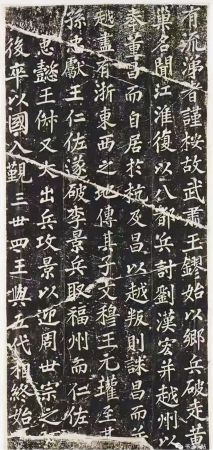 有流涕者謹桉故武肅王鏐始以鄉兵破走黃
巢名聞江淮復以八都兵討劉漢宏并越州以
奉董昌而自居於杭及昌以越叛則誅昌而
越盡有浙東西之地傳其子文穆王元瓘至其
孫忠獻王仁佐遂破李景兵取福州而仁佐
忠懿王俶又大出兵攻景以迎周世宗之
後卒以國入覲三世四王與五代相終始